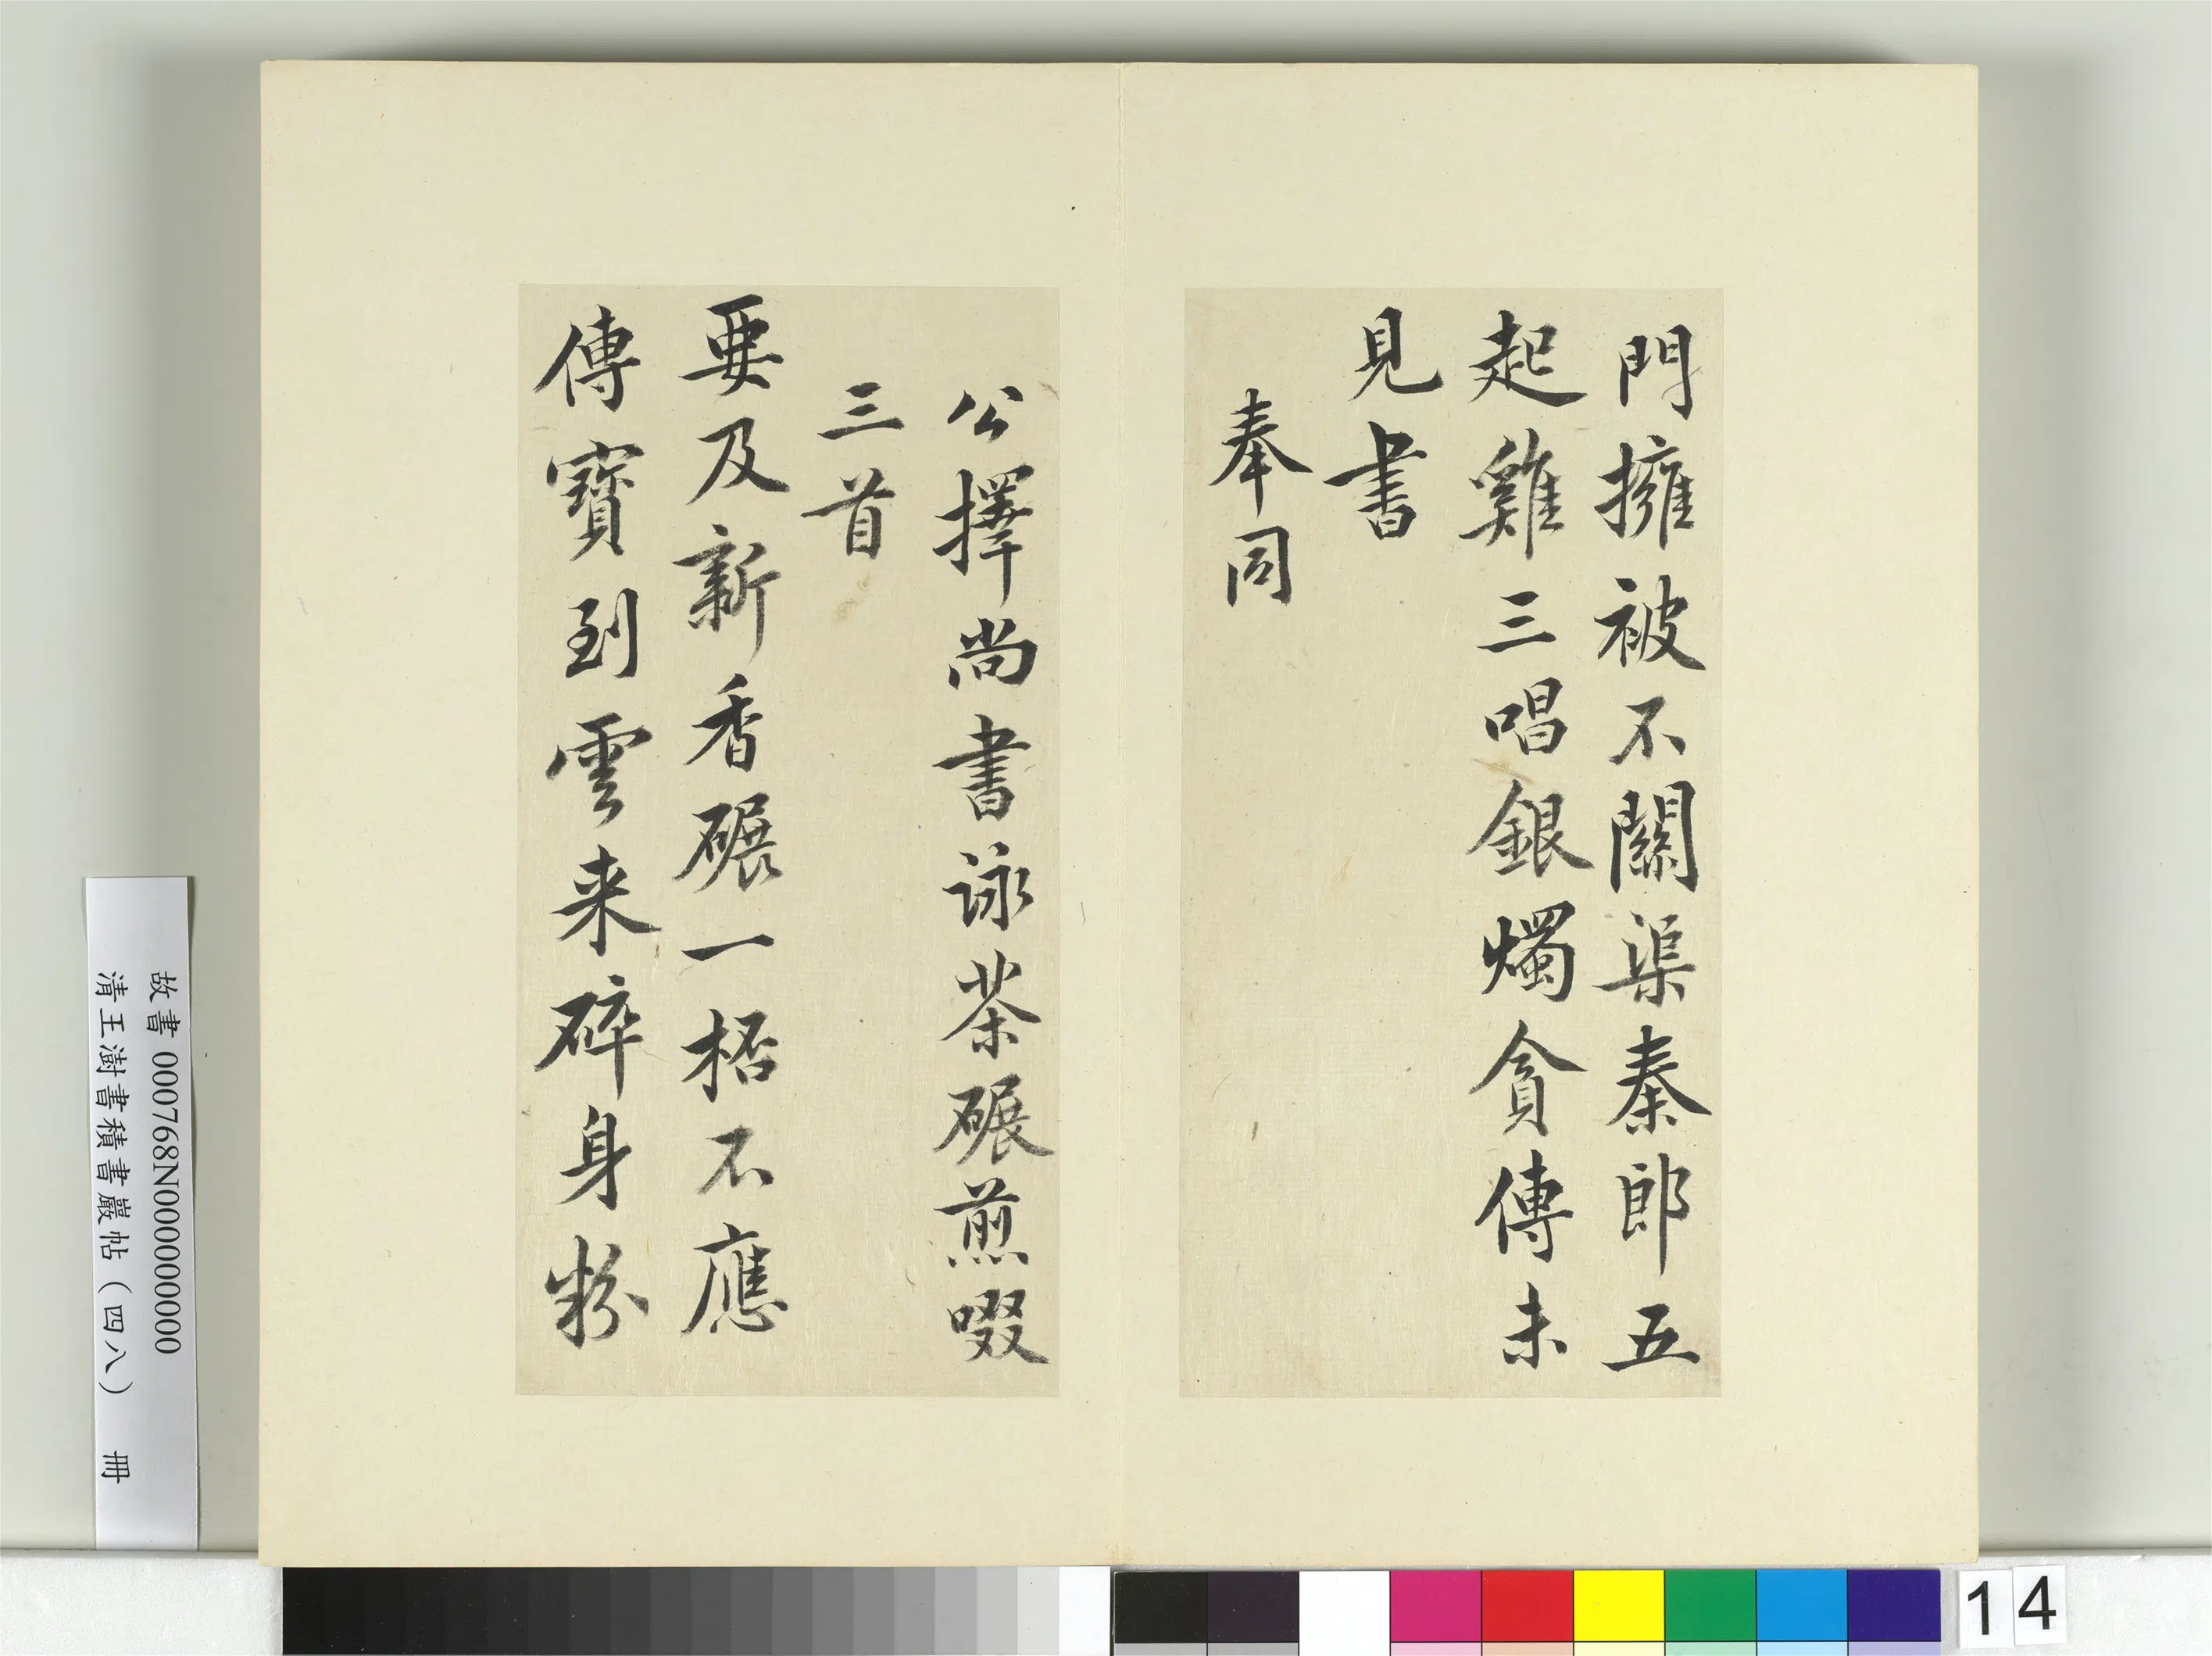 門擁被不關渠秦郎五
起雞三唱銀燭貪傳未
見書
奉同
公擇尚書詠茶碾煎啜
三首
要及新香碾一桮不應
傳寶到雲来碎身粉
故書 000768N000000000
清王澍書積書巖帖（四八） 冊
14